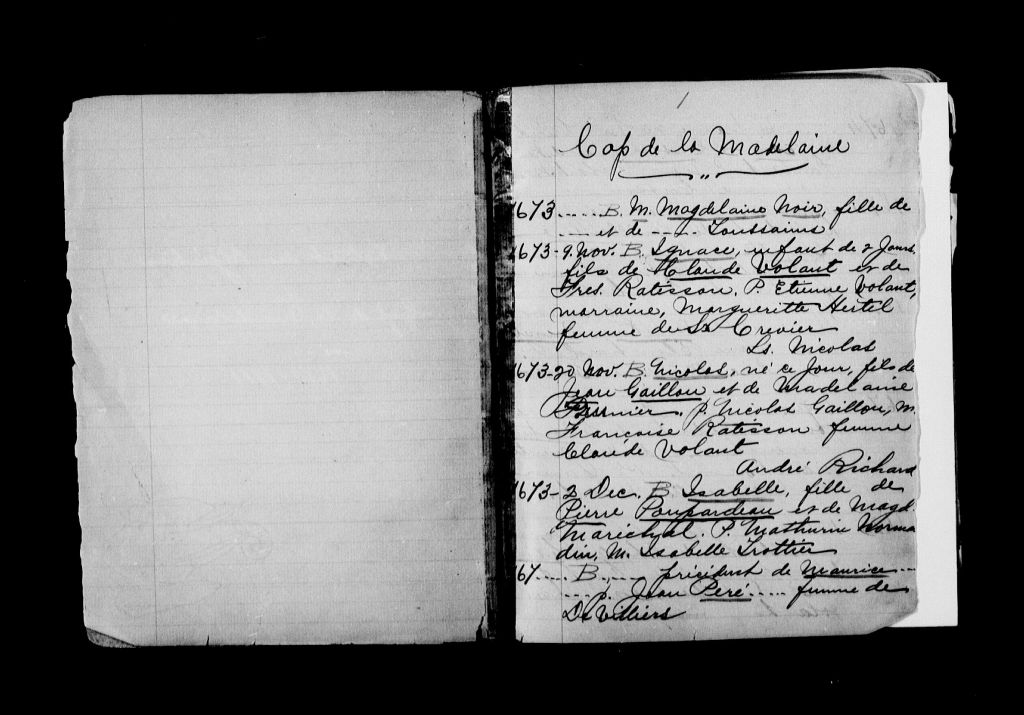 1
Cap de la Madelaine
1673 ..... B. M. Magdelaine Noir, fille de
---- et de ---- Toussaints
1673-9. Nov. B. Ignace, enfant de 2 Jours
fils de Claude Volant et de
Frse. Ratisson. P. Etienne Volant,
marraine, Margueritte Hertel
femme du Sr Crevier
Ls. Nicolas
1673-20 Nov. B. Nicolas, né ce Jour, fils de
Jean Gaillou et de Madelaine
P. Nicolas Gaillou, M.
Francoise Ratisson femme
Claude Volant
André Richard
1673-2 Dec. B. Isabelle, fille de
Pierre Poupardeau et de Magd.
Maréchal. P. Mathurin Norma
din, M. Isabelle Trottier
167..... B..... président de Maurice ---
---- P. Jean Peré ..... femme de
De Villiers